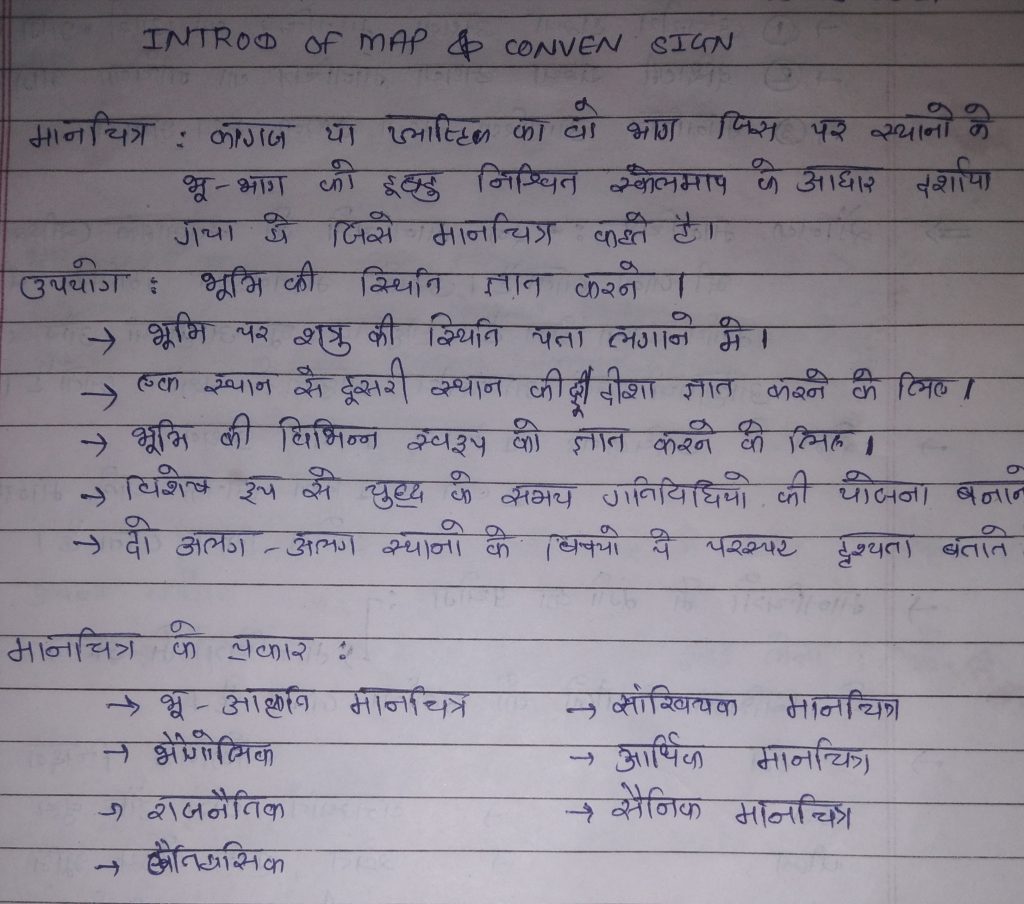 INTROD OF MAP & CONVEN SIGN
मानचित्र : कागज या प्लास्टिक का वो भाग जिस पर स्थानो के
भू-भाग को हुबहु निश्चित स्केलमाप के आधार दर्शाया
गया ये जिसे मानचित्र कहते है।
उपयोग : भूमि की स्थिति ज्ञात करने ।
→ भूमि पर शत्रु की स्थिति पता लगाने मे ।
→ एक स्थान से दूसरी स्थान की दीशा ज्ञात करने के लिए ।
→ भूमि की विभिन्न स्वरूप को ज्ञात करने के लिए ।
→ विशेष रूप से युद्ध के समय गतिविधियो की योजना बनाने
→ दो अलग-अलग स्थानो के विषयो पे परस्पर दृश्यता बताते
मानचित्र के प्रकार :
→ भू-आकृति मानचित्र → सांख्यिक मानचित्र
→ भौगोलिक → आर्थिक मानचित्र
→ राजनैतिक → सैनिक मानचित्र
→ ऐतिहासिक